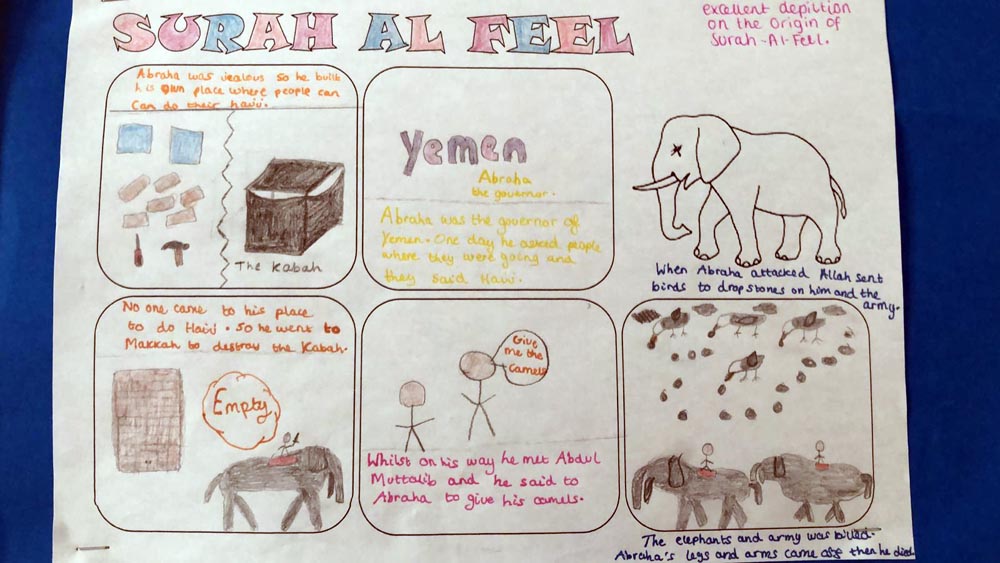 SURAH AL FEEL
excellent depiction
on the origin of
Surah-Al-Feel.
Abraha was jealous so he built
his own place where people can
can do their Hajj.
The Kabah
Yemen
Abraha
the governor.
Abraha was the governor of
Yemen. One day he asked people
where they were going and
they said Hajj.
When Abraha attacked Allah sent
birds to drop stones on him and the
army.
No one came to his place
to do Hajj. So he went to
Makkah to destroy the Kabah.
Empty
Give
me the
camels
Whilst on his way he met Abdul
Muttalib and he said to
Abraha to give his camels.
The elephants and army was killed.
Abraha's legs and arms came off then he died